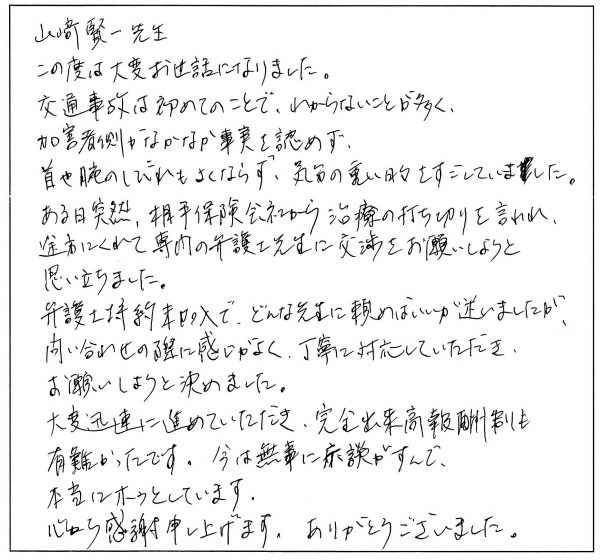 山﨑賢一先生
この度は大変お世話になりました。
交通事故は初めてのことで、わからないことが多く、
加害者側がなかなか事実を認めず、
首や腕のしびれもよくならず、気分の重い日々をすごしていました。
ある日突然、相手保険会社から治療の打ち切りを言われ、
途方にくれて専門の弁護士先生に交渉をお願いしようと
思い立ちました。
弁護士特約未加入で、どんな先生に頼めばいいか迷いましたが、
問い合わせの際に感じがよく、丁寧に対応していただき、
お願いしようと決めました。
大変迅速に進めていただき、完全出来高報酬制も
有難かったです。今は無事に示談がすんで、
本当にホッとしています。
心から感謝申し上げます。ありがとうございました。